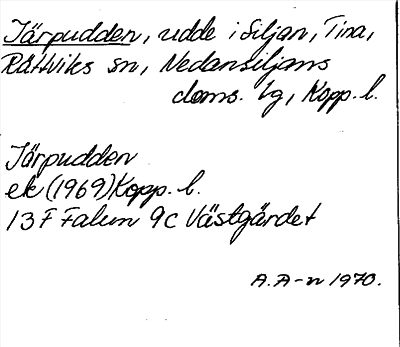 Järpudden, udde i Siljan, Tina,
Rättviks sn, Nedansiljans
doms. tg, Kopp. l.
Järpudden
ek (1969) Kopp. l.
13 F Falun 9c Västgärdet
A. A-n 1970.